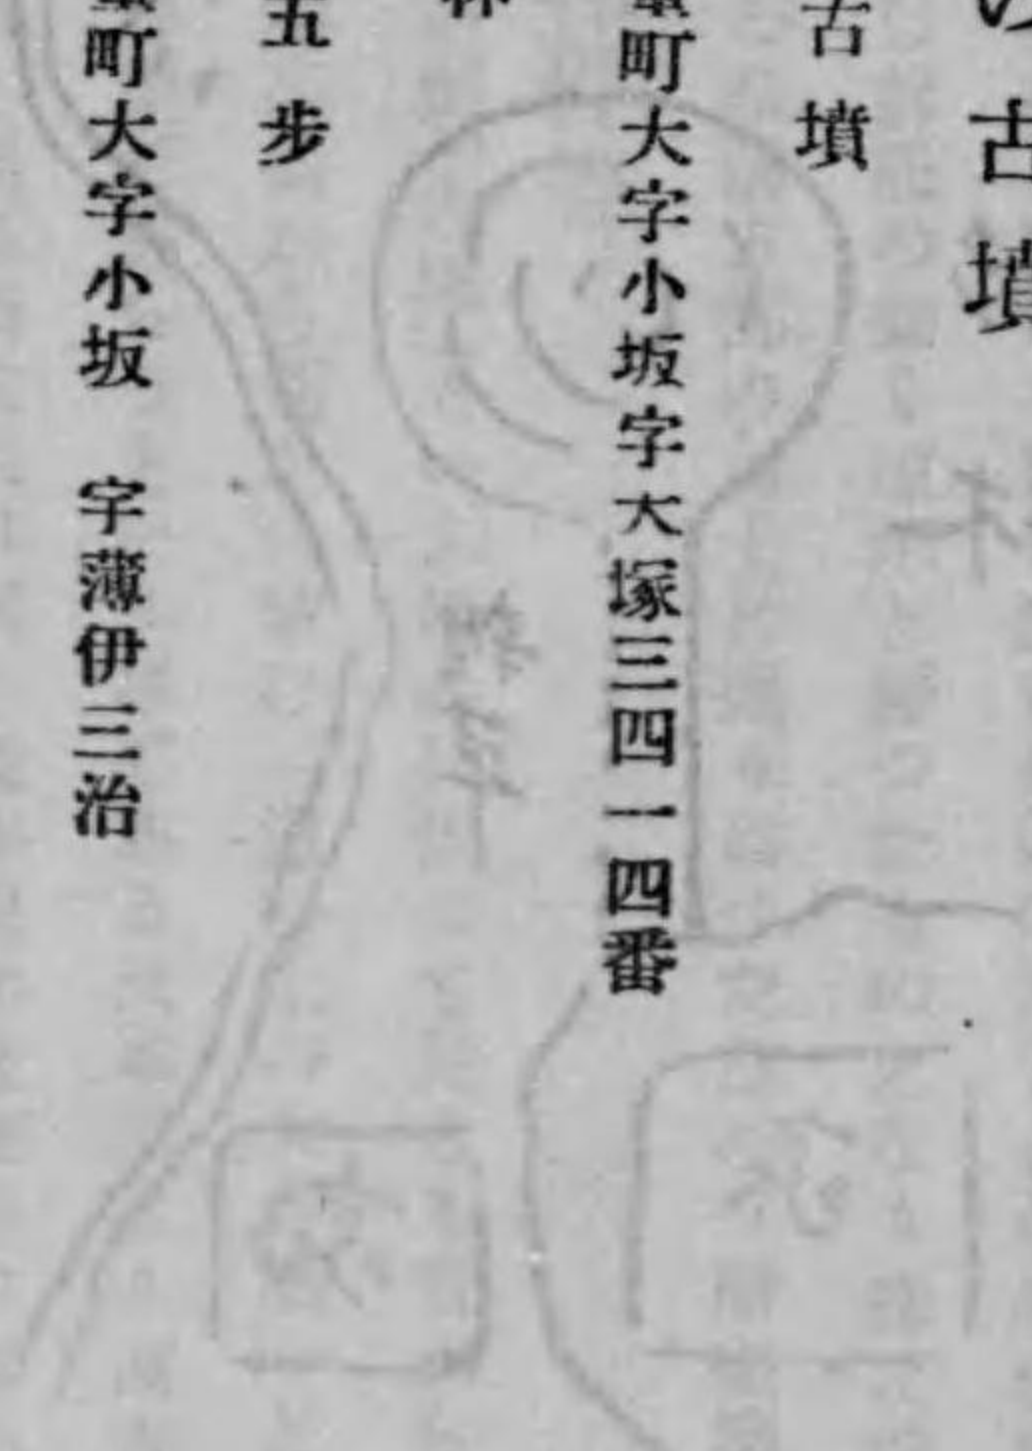 の古墳
古墳
町大字小坂字大塚三四一四番
林
五步
町大字小坂　宇薄伊三治